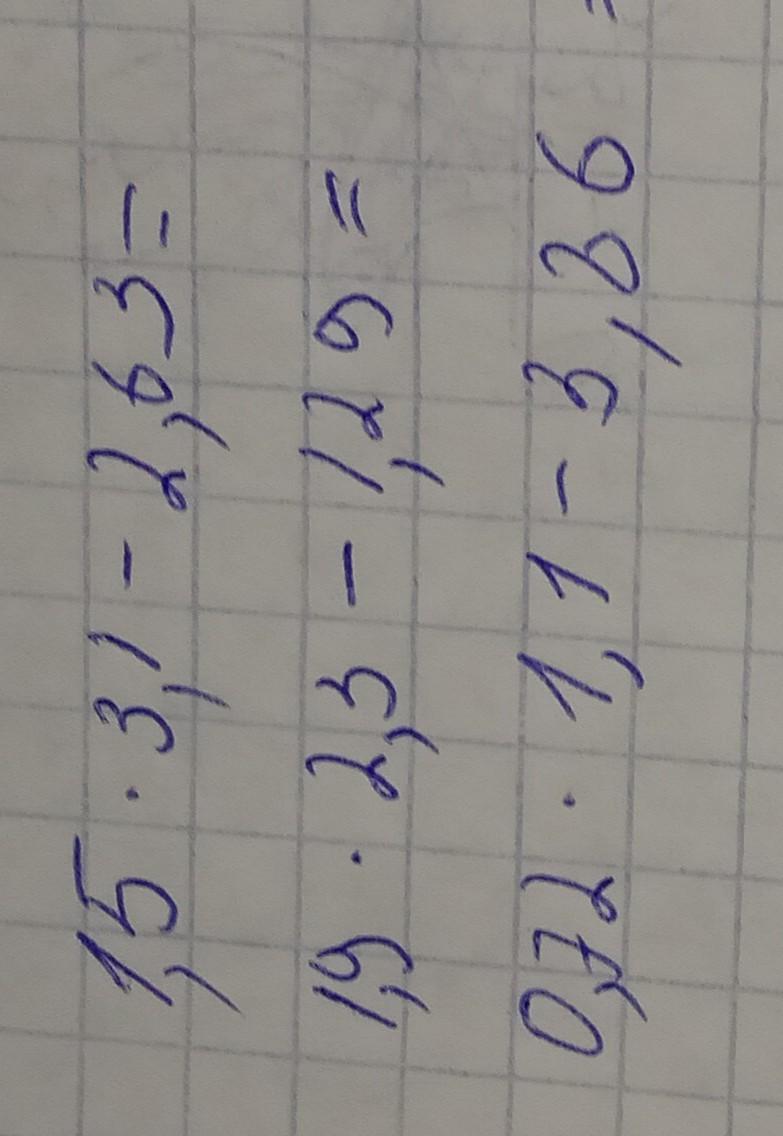 1,5 · 3,1 - 2,63 =
1,9 · 2,3 - 1,29 =
0,72 · 1,1 - 3,36 =